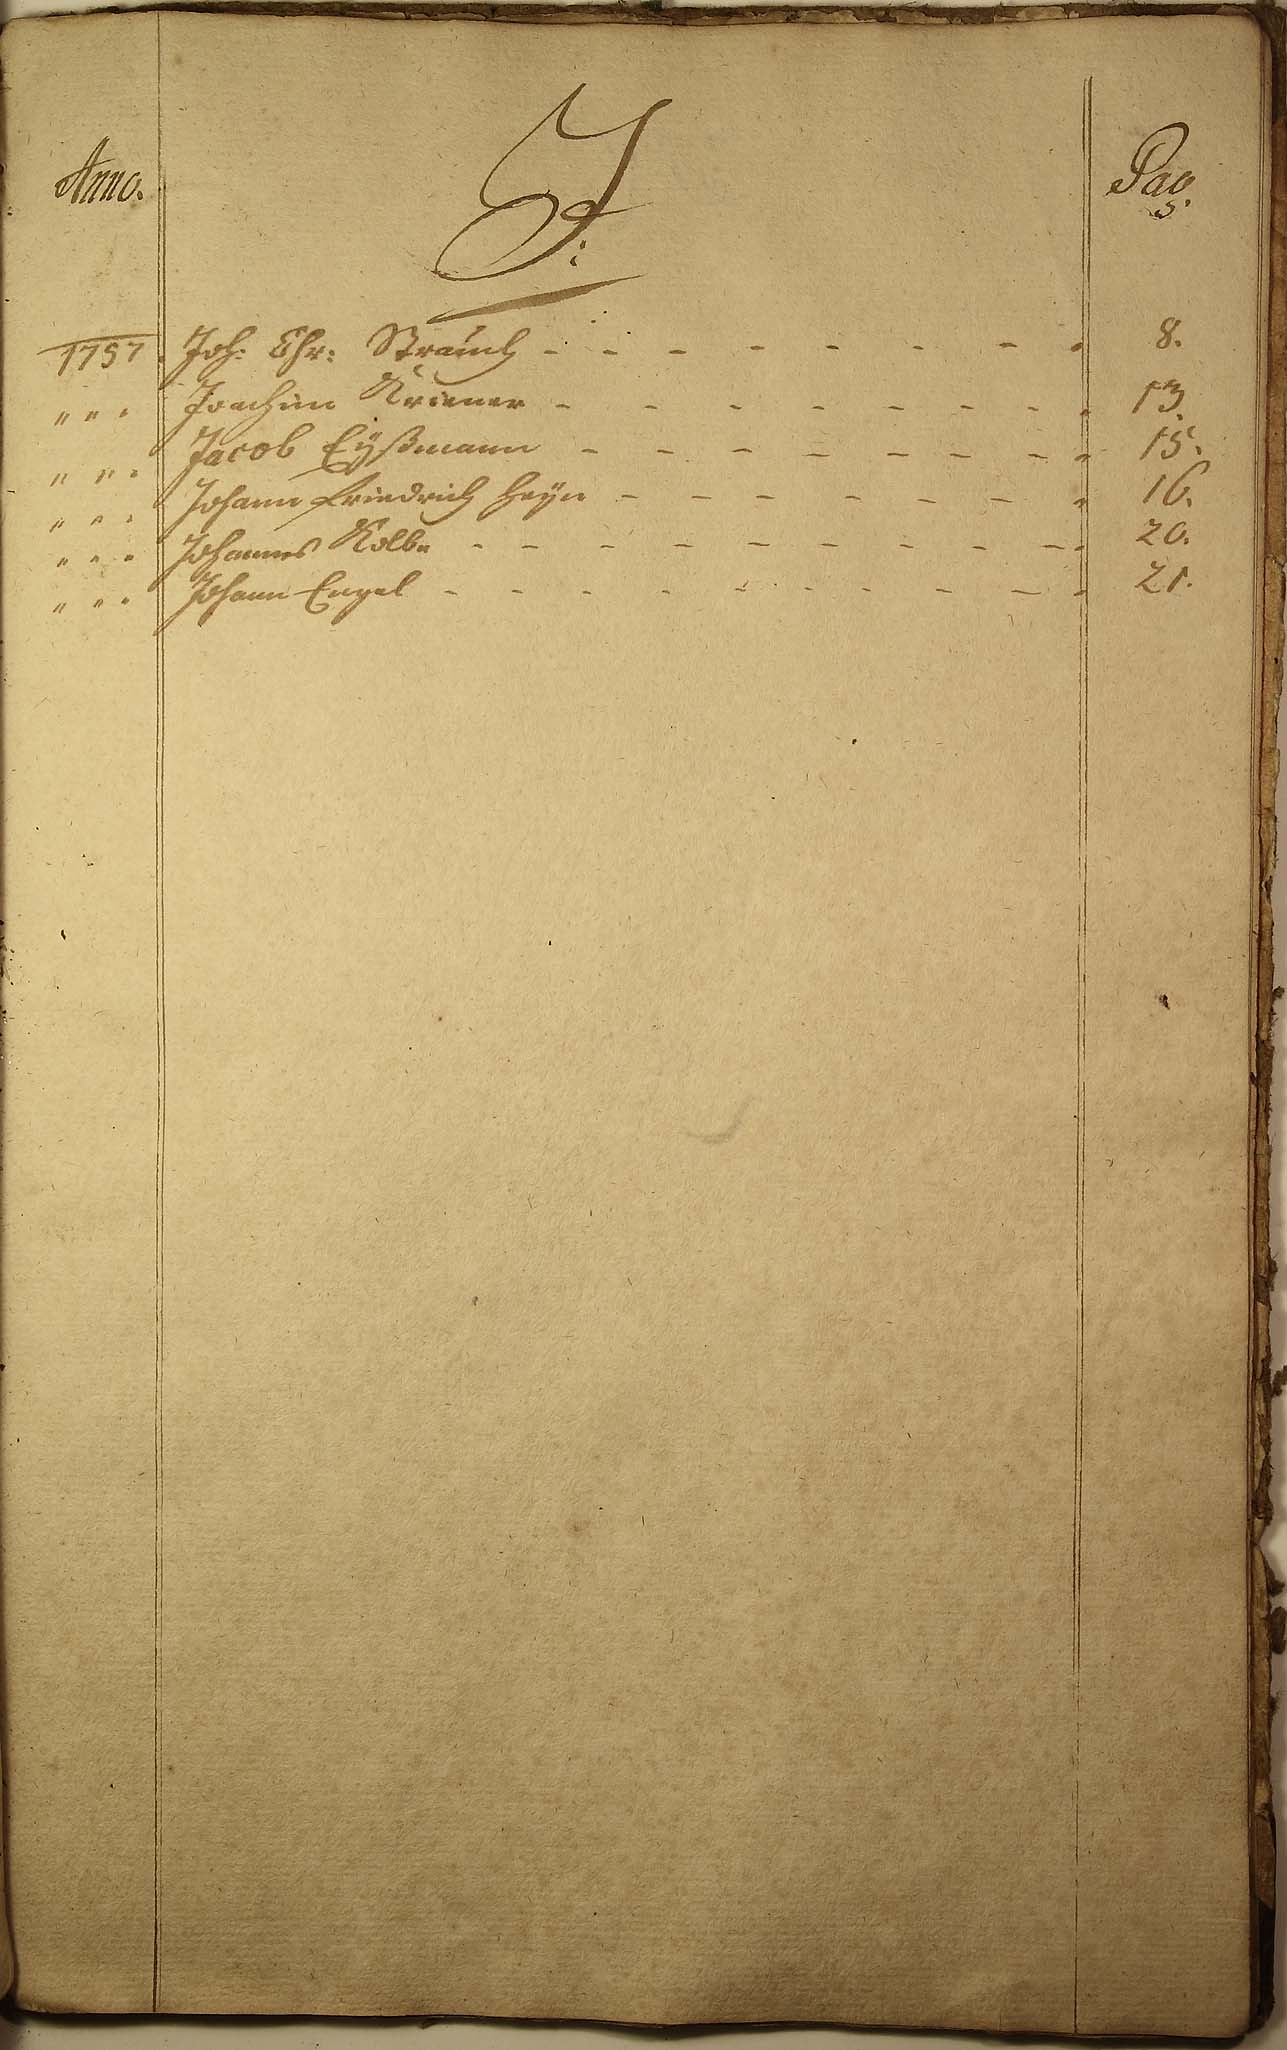 Anno. J: Pag.
1757. Joh: Chr: Strauch - - - - - - - - 8.
" " " Joachim Kriener - - - - - - - - 13.
" " " Jacob Eyßmann - - - - - - - - 15.
" " " Johann Friedrich Heyn - - - - - - - 16.
" " " Johannes Kolbe - - - - - - - - - 20.
" " " Johann Engel - - - - - - - - - 21.